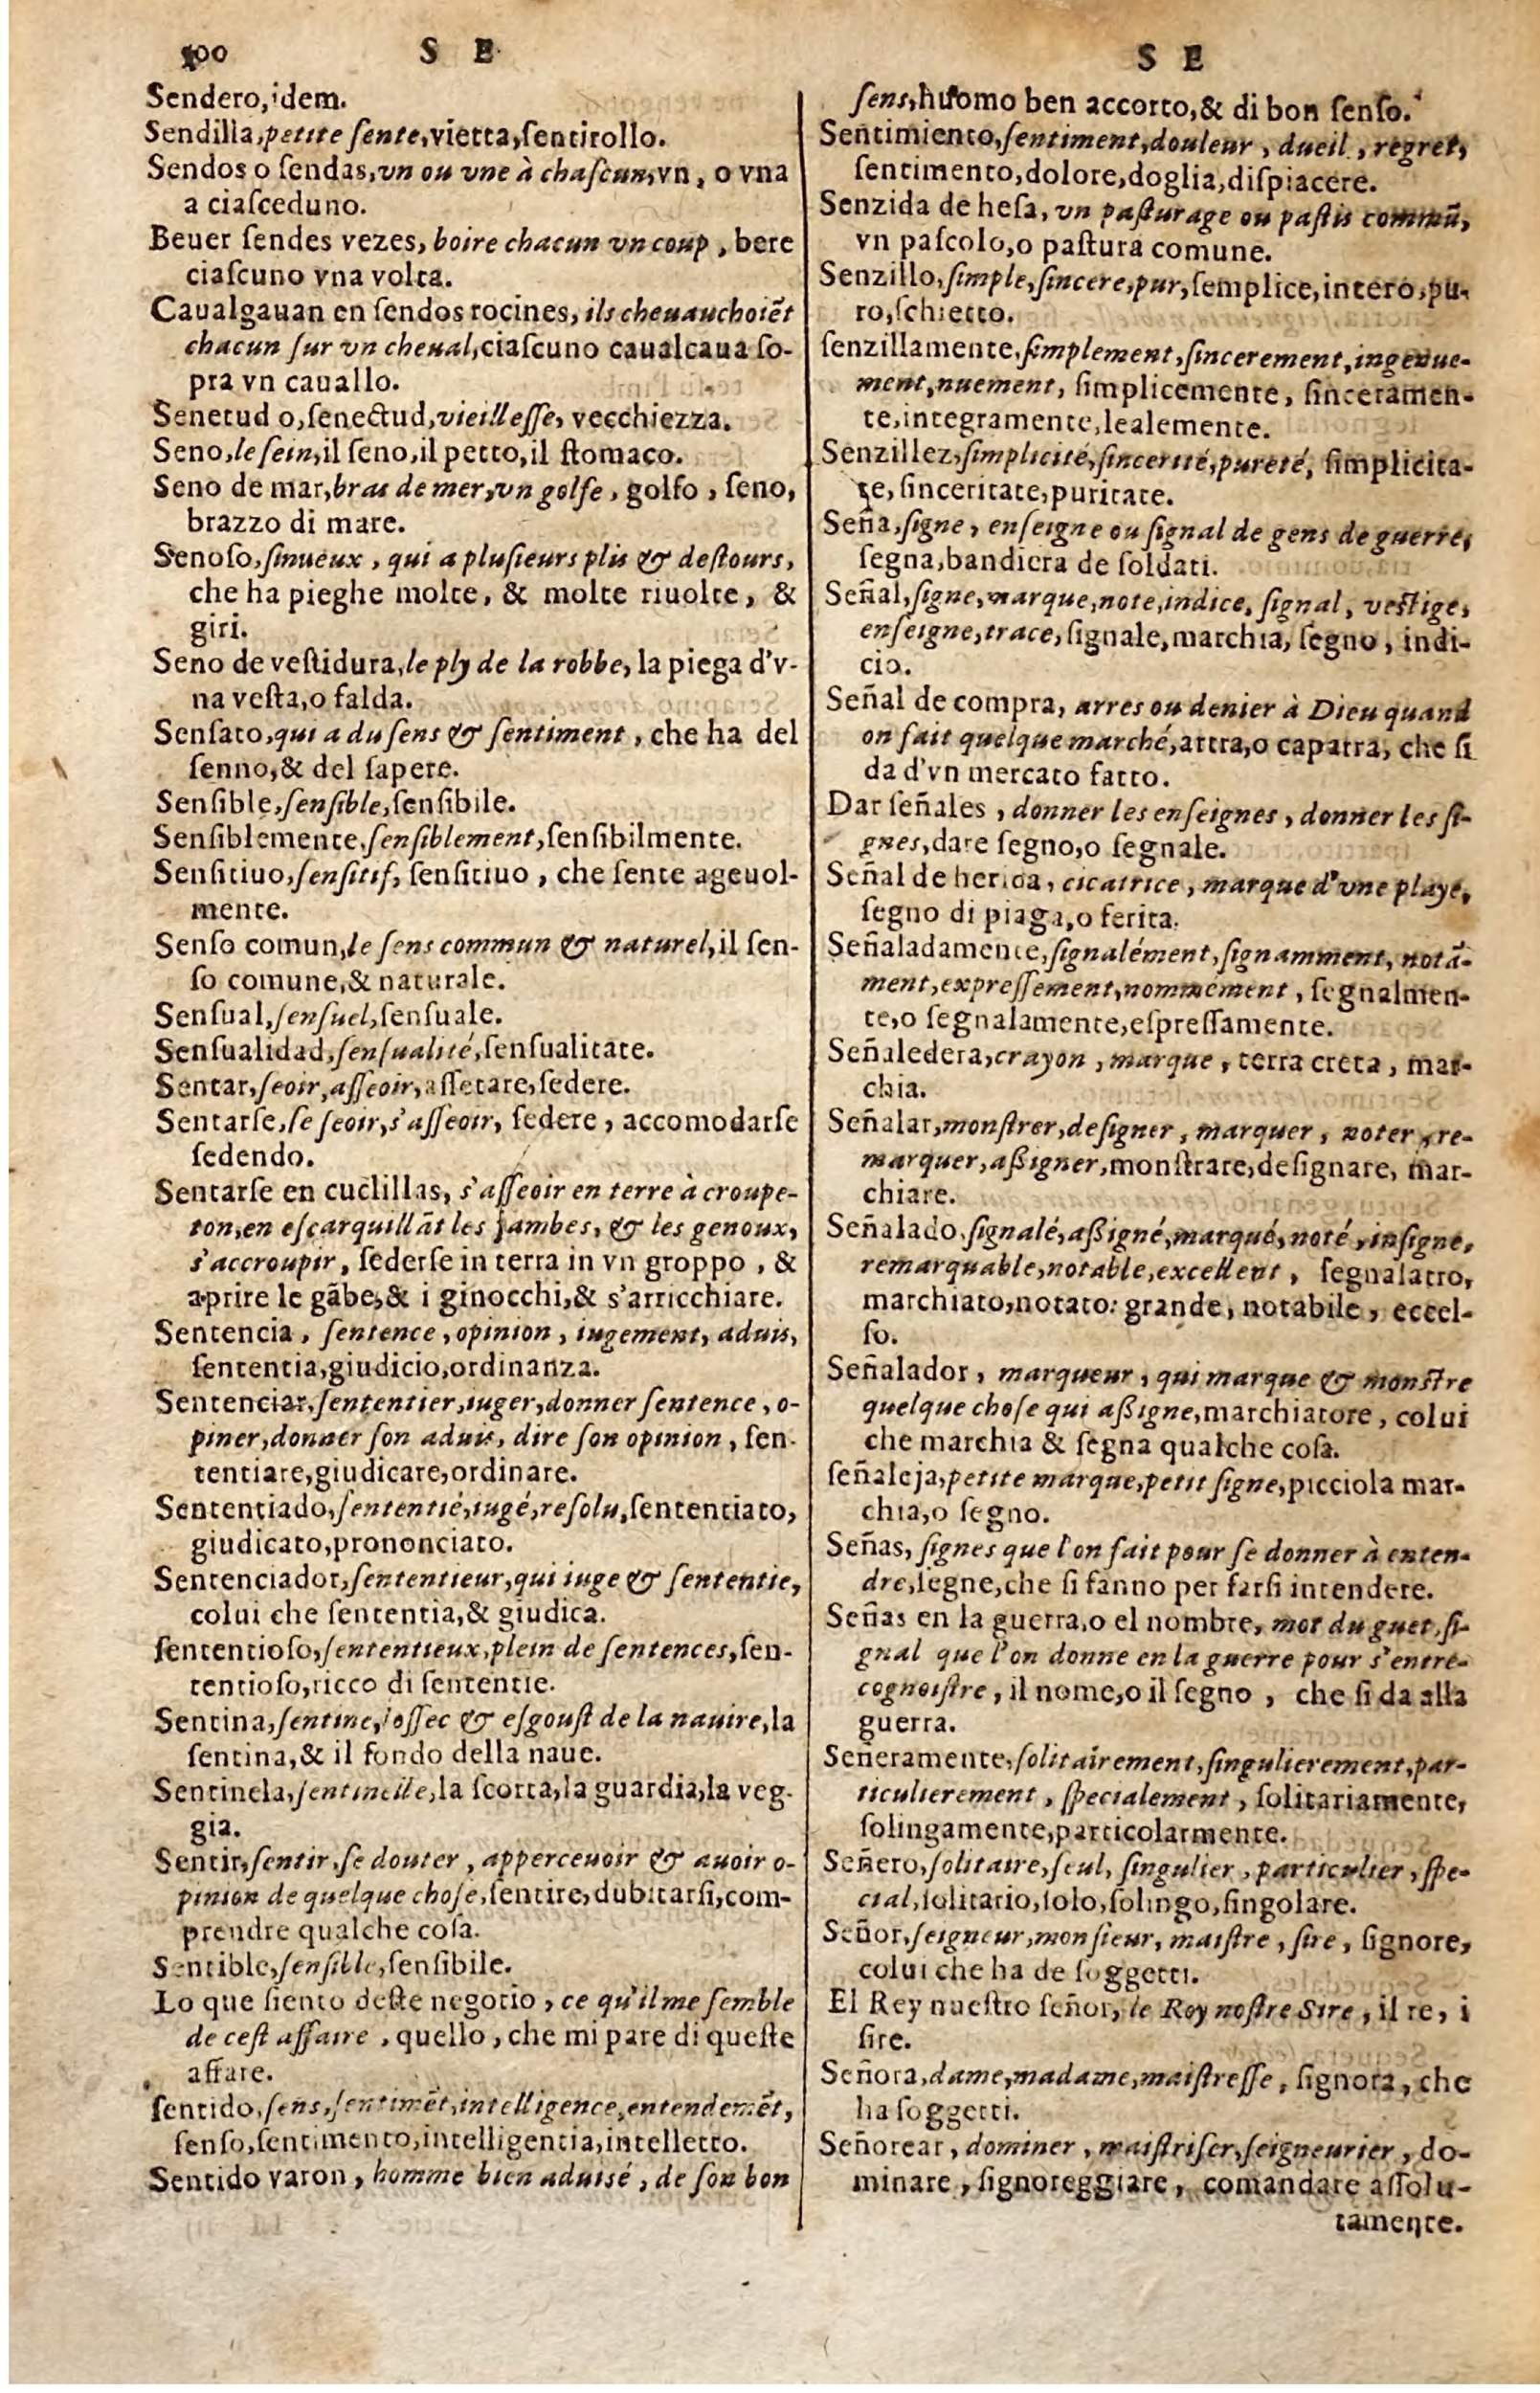 100 S E
Sendero,idem.
Sendilla,petite ſente,vietta,ſentirollo.
Sendos o ſendas,vn ou vne à chaſcun,vn, o vna
a ciaſceduno.
Beuer ſendes vezes, boire chacun vn coup, bere
ciaſcuno vna volta.
Caualgauan en ſendos rocines, ils cheuauchoiẽt
chacun ſur vn cheual,ciaſcuno caualcaua ſo-
pra vn cauallo.
Senetud o,ſenectud,vieilleſſe, vecchiezza.
Seno,le ſein,il ſeno,il petto,il ſtomaco.
Seno de mar,bras de mer,vn golfe, golfo, ſeno,
brazzo di mare.
Senoſo,ſinueux, qui a pluſieurs plis & deſtours,
che ha pieghe molte, & molte riuolte, &
giri.
Seno de veſtidura,le ply de la robbe, la piega d'v-
na veſta,o falda.
Senſato,qui a du ſens & ſentiment, che ha del
ſenno,& del ſapere.
Senſible,ſenſible,ſenſibile.
Senſiblemente,ſenſiblement,ſenſibilmente.
Senſitiuo,ſenſitif, ſenſitiuo, che ſente ageuol-
mente.
Senſo comun,le ſens commun & naturel,il ſen-
ſo comune,& naturale.
Senſual,ſenſuel,ſenſuale.
Senſualidad,ſenſualité,ſenſualitate.
Sentar,ſeoir,aſſeoir,aſſetare,ſedere.
Sentarſe,ſe ſeoir,s'aſſeoir, ſedere, accomodarſe
ſedendo.
Sentarſe en cuclillas, s'aſſeoir en terre à croupe-
ton,en eſcarquillãt les jambes, & les genoux,
s'accroupir, ſederſe in terra in vn groppo, &
aprire le gãbe,& i ginocchi,& s'arricchiare.
Sentencia, ſentence, opinion, iugement, aduis,
ſententia,giudicio,ordinanza.
Sentenciar,ſententier,iuger,donner ſentence, o-
piner,donner ſon aduis, dire ſon opinion, ſen-
tentiare,giudicare,ordinare.
Sententiado,ſententié,iugé,reſolu,ſententiato,
giudicato,prononciato.
Sentenciador,ſententieur,qui iuge & ſententie,
colui che ſententia,& giudica.
ſententioſo,ſententieux,plein de ſentences,ſen-
tentioſo,ricco di ſententie.
Sentina,ſentine,l'oſſec & eſgouſt de la nauire,la
ſentina,& il fondo della naue.
Sentinela,ſentinelle,la ſcorta,la guardia,la veg-
gia.
Sentir,ſentir,ſe douter, apperceuoir & auoir o-
pinion de quelque choſe,ſentire,dubitarſi,com-
prendre qualche coſa.
Sentible,ſenſible,ſenſibile.
Lo que ſiento deſte negotio, ce qu'il me ſemble
de ceſt affaire, quello, che mi pare di queſte
affare.
ſentido,ſens,ſentimẽt,intelligence,entendemẽt,
ſenſo,ſentimento,intelligentia,intelletto.
Sentido varon, homme bien aduisé, de ſon bon
S E
ſens,huomo ben accorto,& di bon ſenſo.
Sentimiento,ſentiment,douleur, dueil, regret,
ſentimento,dolore,doglia,diſpiacere.
Senzida de heſa, vn paſturage ou paſtis commũ,
vn paſcolo,o paſtura comune.
Senzillo,ſimple,ſincere,pur,ſemplice,intero,pu-
ro,ſchietto.
ſenzillamente,ſimplement,ſincerement,ingenue-
ment,nuement, ſimplicemente, ſinceramen-
te,integramente,lealemente.
Senzillez,ſimplicité,ſincerité,pureté, ſimplicita-
te,ſinceritate,puritate.
Seña,ſigne, enſeigne ou ſignal de gens de guerre,
ſegna,bandiera de ſoldati.
Señal,ſigne,marque,note,indice, ſignal, veſtige,
enſeigne,trace,ſignale,marchia, ſegno, indi-
cio.
Señal de compra, arres ou denier à Dieu quand
on fait quelque marché,arrra,o caparra, che ſi
da d'vn mercato fatto.
Dar ſeñales, donner les enſeignes, donner les ſi-
gnes,dare ſegno,o ſegnale.
Señal de herida, cicatrice, marque d'vne playe,
ſegno di piaga,o ferita.
Señaladamente,ſignalément,ſignamment, notã-
ment,expreſſement,nommément, ſegnalmen-
te,o ſegnalamente,eſpreſſamente.
Señaledera,crayon, marque, terra creta, mar-
chia.
Señalar,monſtrer,deſigner, marquer, noter, re-
marquer,aßigner,monſtrare,deſignare, mar-
chiare.
Señalado,ſignalé,aßigné,marqué,noté,inſigne,
remarquable,notable,excellent, ſegnalatro,
marchiato,notato: grande, notabile, eccel-
ſo.
Señalador, marqueur, qui marque & monſtre
quelque choſe qui aßigne,marchiatore, colui
che marchia & ſegna qualche coſa.
ſeñaleja,petite marque,petit ſigne,picciola mar-
chia,o ſegno.
Señas, ſignes que l'on fait pour ſe donner à enten-
dre,ſegne,che ſi fanno per farſi intendere.
Señas en la guerra,o el nombre, mot du guet,ſi-
gnal que l'on donne en la guerre pour s'entre-
cognoiſtre, il nome,o il ſegno, che ſi da alla
guerra.
Señeramente,ſolitairement,ſingulierement,par-
ticulierement, ſpecialement, ſolitariamente,
ſolingamente,particolarmente.
Señero,ſolitaire,ſeul, ſingulier, particulier, ſpe-
cial,ſolitario,ſolo,ſolingo,ſingolare.
Señor,ſeigneur,monſieur, maiſtre, ſire, ſignore,
colui che ha de ſoggetti.
El Rey nueſtro ſeñor, le Roy noſtre Sire, il re, i
ſire.
Señora,dame,madame,maiſtreſſe, ſignora, che
ha ſoggetti.
Señorear, dominer, maiſtriſer,ſeigneurier, do-
minare, ſignoreggiare, comandare aſſolu-
tamente.